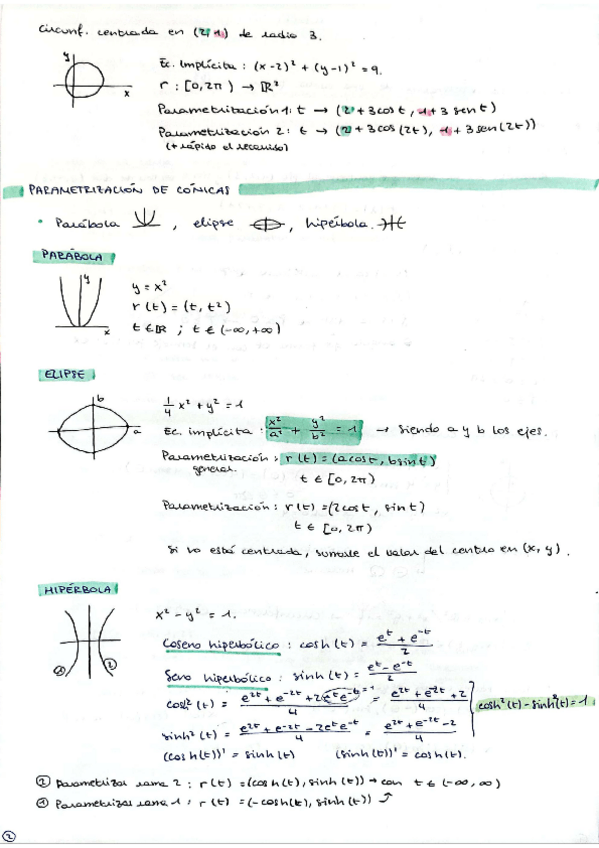 Circunf. centrada en (2,1) de radio 3.
y
x
Ec. Implícita : (x-2)² + (y-1)² = 9.
r : [0,2π) → ℝ²
Parametrización 1: t → (2+3cost, 1+3sent)
Parametrización 2: t → (2+3cos(2t), 1+3sen(2t))
(+ rápido el recorrido)
PARAMETRIZACIÓN DE CÓNICAS
• Parábola , elipse , hipérbola.
PARÁBOLA
y
x
y = x²
r(t) = (t, t²)
t ∈ ℝ ; t ∈ (-∞,+∞)
ELIPSE
b
a
1/4 x² + y² = 1
Ec. implícita : x²/a² + y²/b² = 1 → siendo a y b los ejes.
Parametrización : r(t) = (acost, bsint)
general.
t ∈ [0,2π)
Parametrización : r(t) = (2cost, sint)
t ∈ [0,2π)
Si no está centrada, sumarle el valor del centro en (x,y).
HIPÉRBOLA
1
2
x² - y² = 1.
Coseno hiperbólico : cosh(t) = (e^t + e^-t)/2
Seno hiperbólico : sinh(t) = (e^t - e^-t)/2
cosh²(t) = (e^2t + e^-2t + 2e^t e^-t)/4 = (e^2t + e^-2t + 2)/4
=1
cosh²(t) - sinh²(t) = 1
sinh²(t) = (e^2t + e^-2t - 2e^t e^-t)/4 = (e^2t + e^-2t - 2)/4
(cosh(t))' = sinh(t) (sinh(t))' = cosh(t).
② Parametrizar rama 2 : r(t) = (cosh(t), sinh(t)) → con t ∈ (-∞,∞)
① Parametrizar rama 1 : r(t) = (-cosh(t), sinh(t))
2